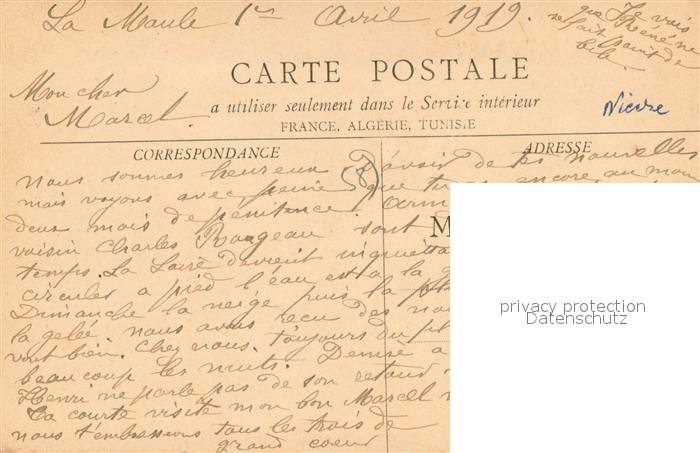 La Maule 1er Avril 1919.
Je vois
que René n
ne fait point de
bile.
Mon cher
Marcel.
CARTE POSTALE
a utiliser seulement dans le Service intérieur
FRANCE, ALGÉRIE, TUNISIE
Nievre
CORRESPONDANCE
ADRESSE
58
nous sommes heureux d'avoir de tes nouvelles
mais voyons avec peine que tu as encore au moins
deux mois de pénitence.
voisin Charles Rougeau sont
temps. La Loire devient inquiétta
circuler a pied l'eau est a la
Dimanche la neige puis la plu
la gelée nous avons recu des nou
vont bien. Chez nous. toujours du pl
beaucoup les nuits. Denise a
Henri ne parle pas de son retour
Ta courte visite mon bon Marcel
nous t'embrassons tous les trois de
grand coeur
M
privacy protection
Datenschutz